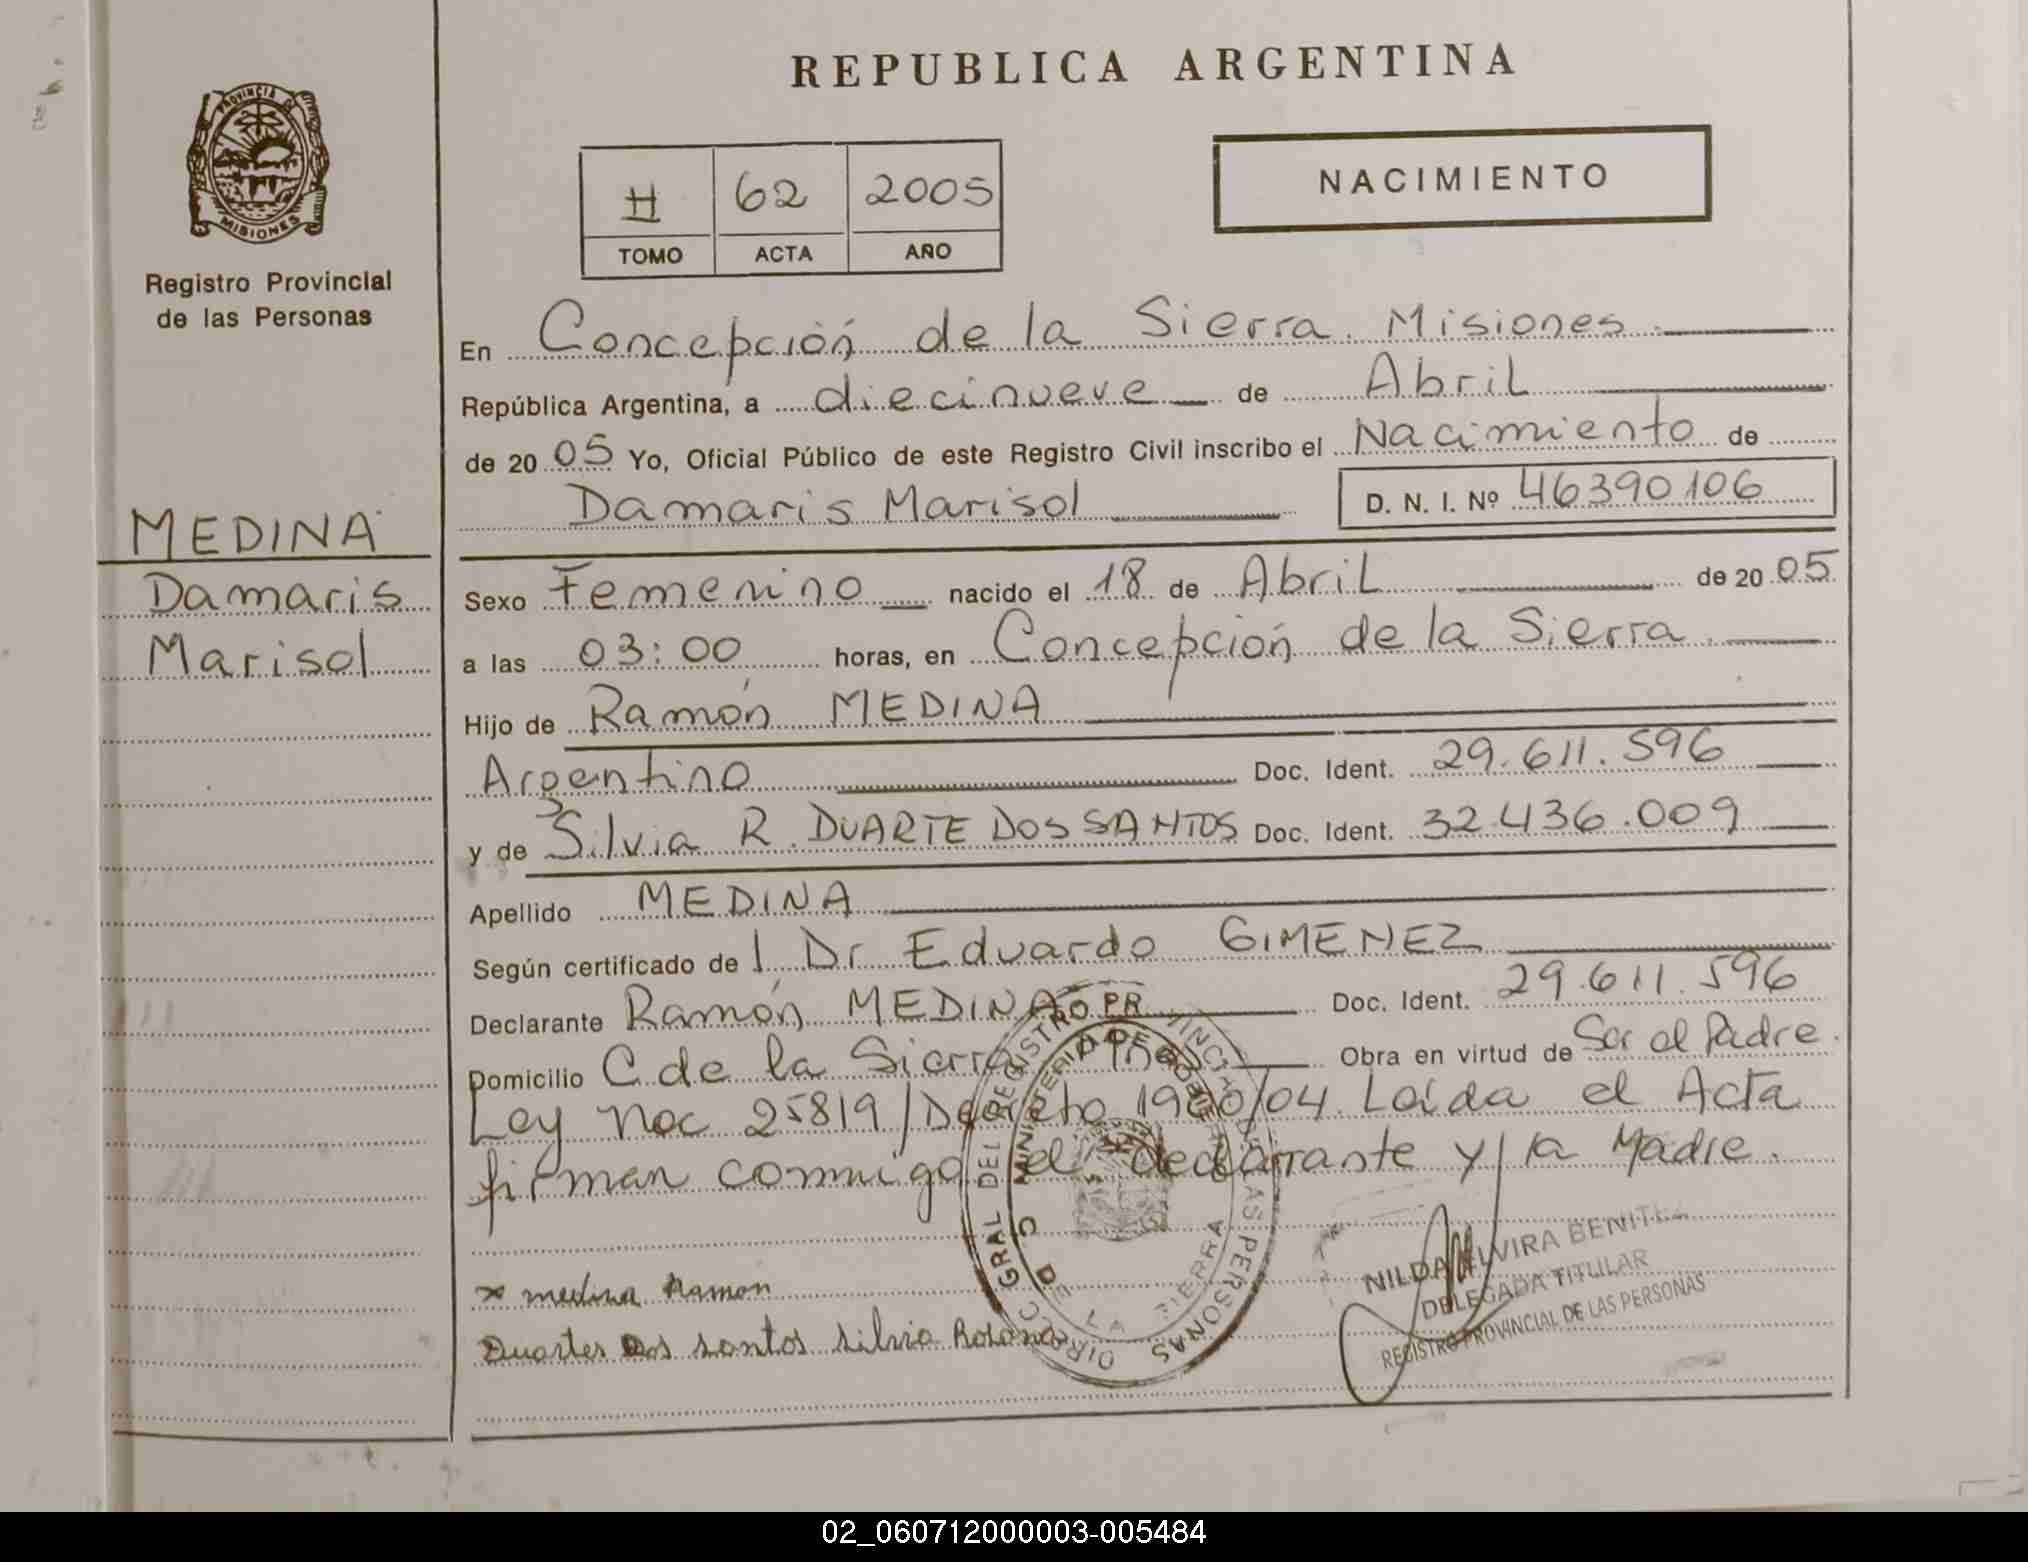 REPUBLICA ARGENTINA
PROVINCIA DE
MISIONES
Registro Provincial
de las Personas
II 62 2005
TOMO ACTA AÑO
NACIMIENTO
En Concepción de la Sierra. Misiones
República Argentina, a diecinueve de Abril
de 2005 Yo, Oficial Público de este Registro Civil inscribo el Nacimiento de
Damaris Marisol D. N. I. Nº 46390106
MEDINA
Damaris
Marisol
Sexo Femenino nacido el 18 de Abril de 2005
a las 03:00 horas, en Concepción de la Sierra.
Hijo de Ramón MEDINA
Argentino Doc. Ident. 29.611.596
y de Silvia R. DUARTE DOS SANTOS Doc. Ident. 32.436.009
Apellido MEDINA
Según certificado de l Dr Eduardo GIMENEZ
Declarante Ramón MEDINA Doc. Ident. 29.611.596
Domicilio C. de la Sierra Obra en virtud de Ser el Padre.
Ley Nac 25819/Decreto 1900/04. Leída el Acta
firman conmigo el declarante y/ la Madre.
x medina Ramon
Duartes Dos santos silvia Rosana
DIRECC GRAL DEL REGISTRO PR VINCIAL DE LAS PERSONAS
MINISTERIO DE GOBIERNO
C DE LA SIERRA
NILDA ELVIRA BENITEZ
DELEGADA TITULAR
REGISTRO PROVINCIAL DE LAS PERSONAS
02_060712000003-005484